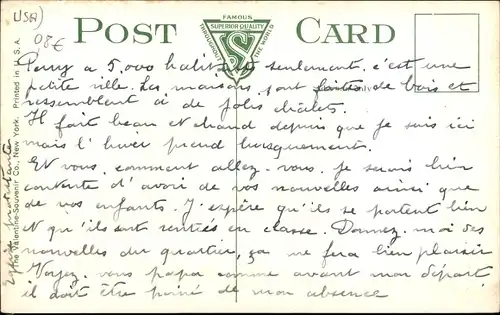 USA)
08€
POST CARD
FAMOUS
SUPERIOR QUALITY
THROUGHOUT THE WORLD
Perry a 5.000 habitants seulement, c'est une
petite ville. Les maisons sont faites de bois et
ressemblent à de jolis châlets.
Il fait beau et chaud depuis que je suis ici
mais l'hiver prend brusquement.
Et vous, comment allez-vous, je serais bien
contente d'avoir de vos nouvelles ainsi que
de vos enfants. J'espère qu'ils se portent bien
et qu'ils sont rentrés en classe. Donnez-moi des
nouvelles du quartier, ça me fera bien plaisir
Voyez-vous papa comme avant mon départ
il doit être peiné de mon absence
The Valentine-Souvenir Co., New York. Printed in U. S. A.
Eglise protestante